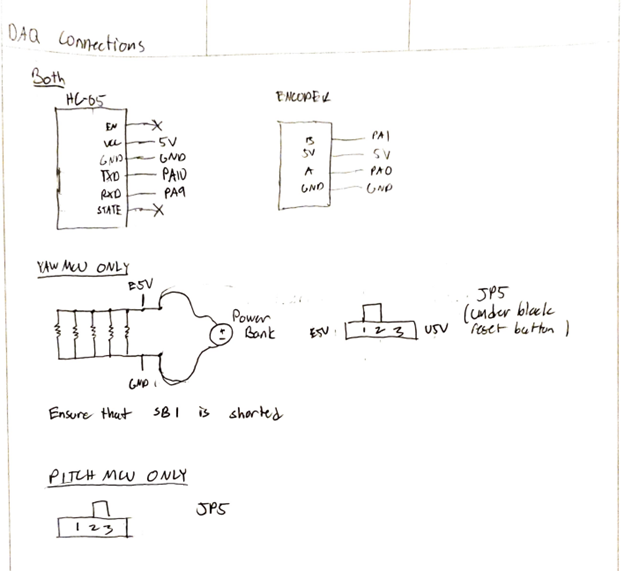 DAQ Connections
Both
HC-05
EN X
VCC 5V
GND GND
TXD PA10
RXD PA9
STATE X
ENCODER
B PA1
5V 5V
A PA0
GND GND
YAW MCU ONLY
E5V
Power
Bank
GND
E5V 1 2 3 U5V
JP5
(under black
reset button)
Ensure that SB1 is shorted
PITCH MCU ONLY
1 2 3
JP5